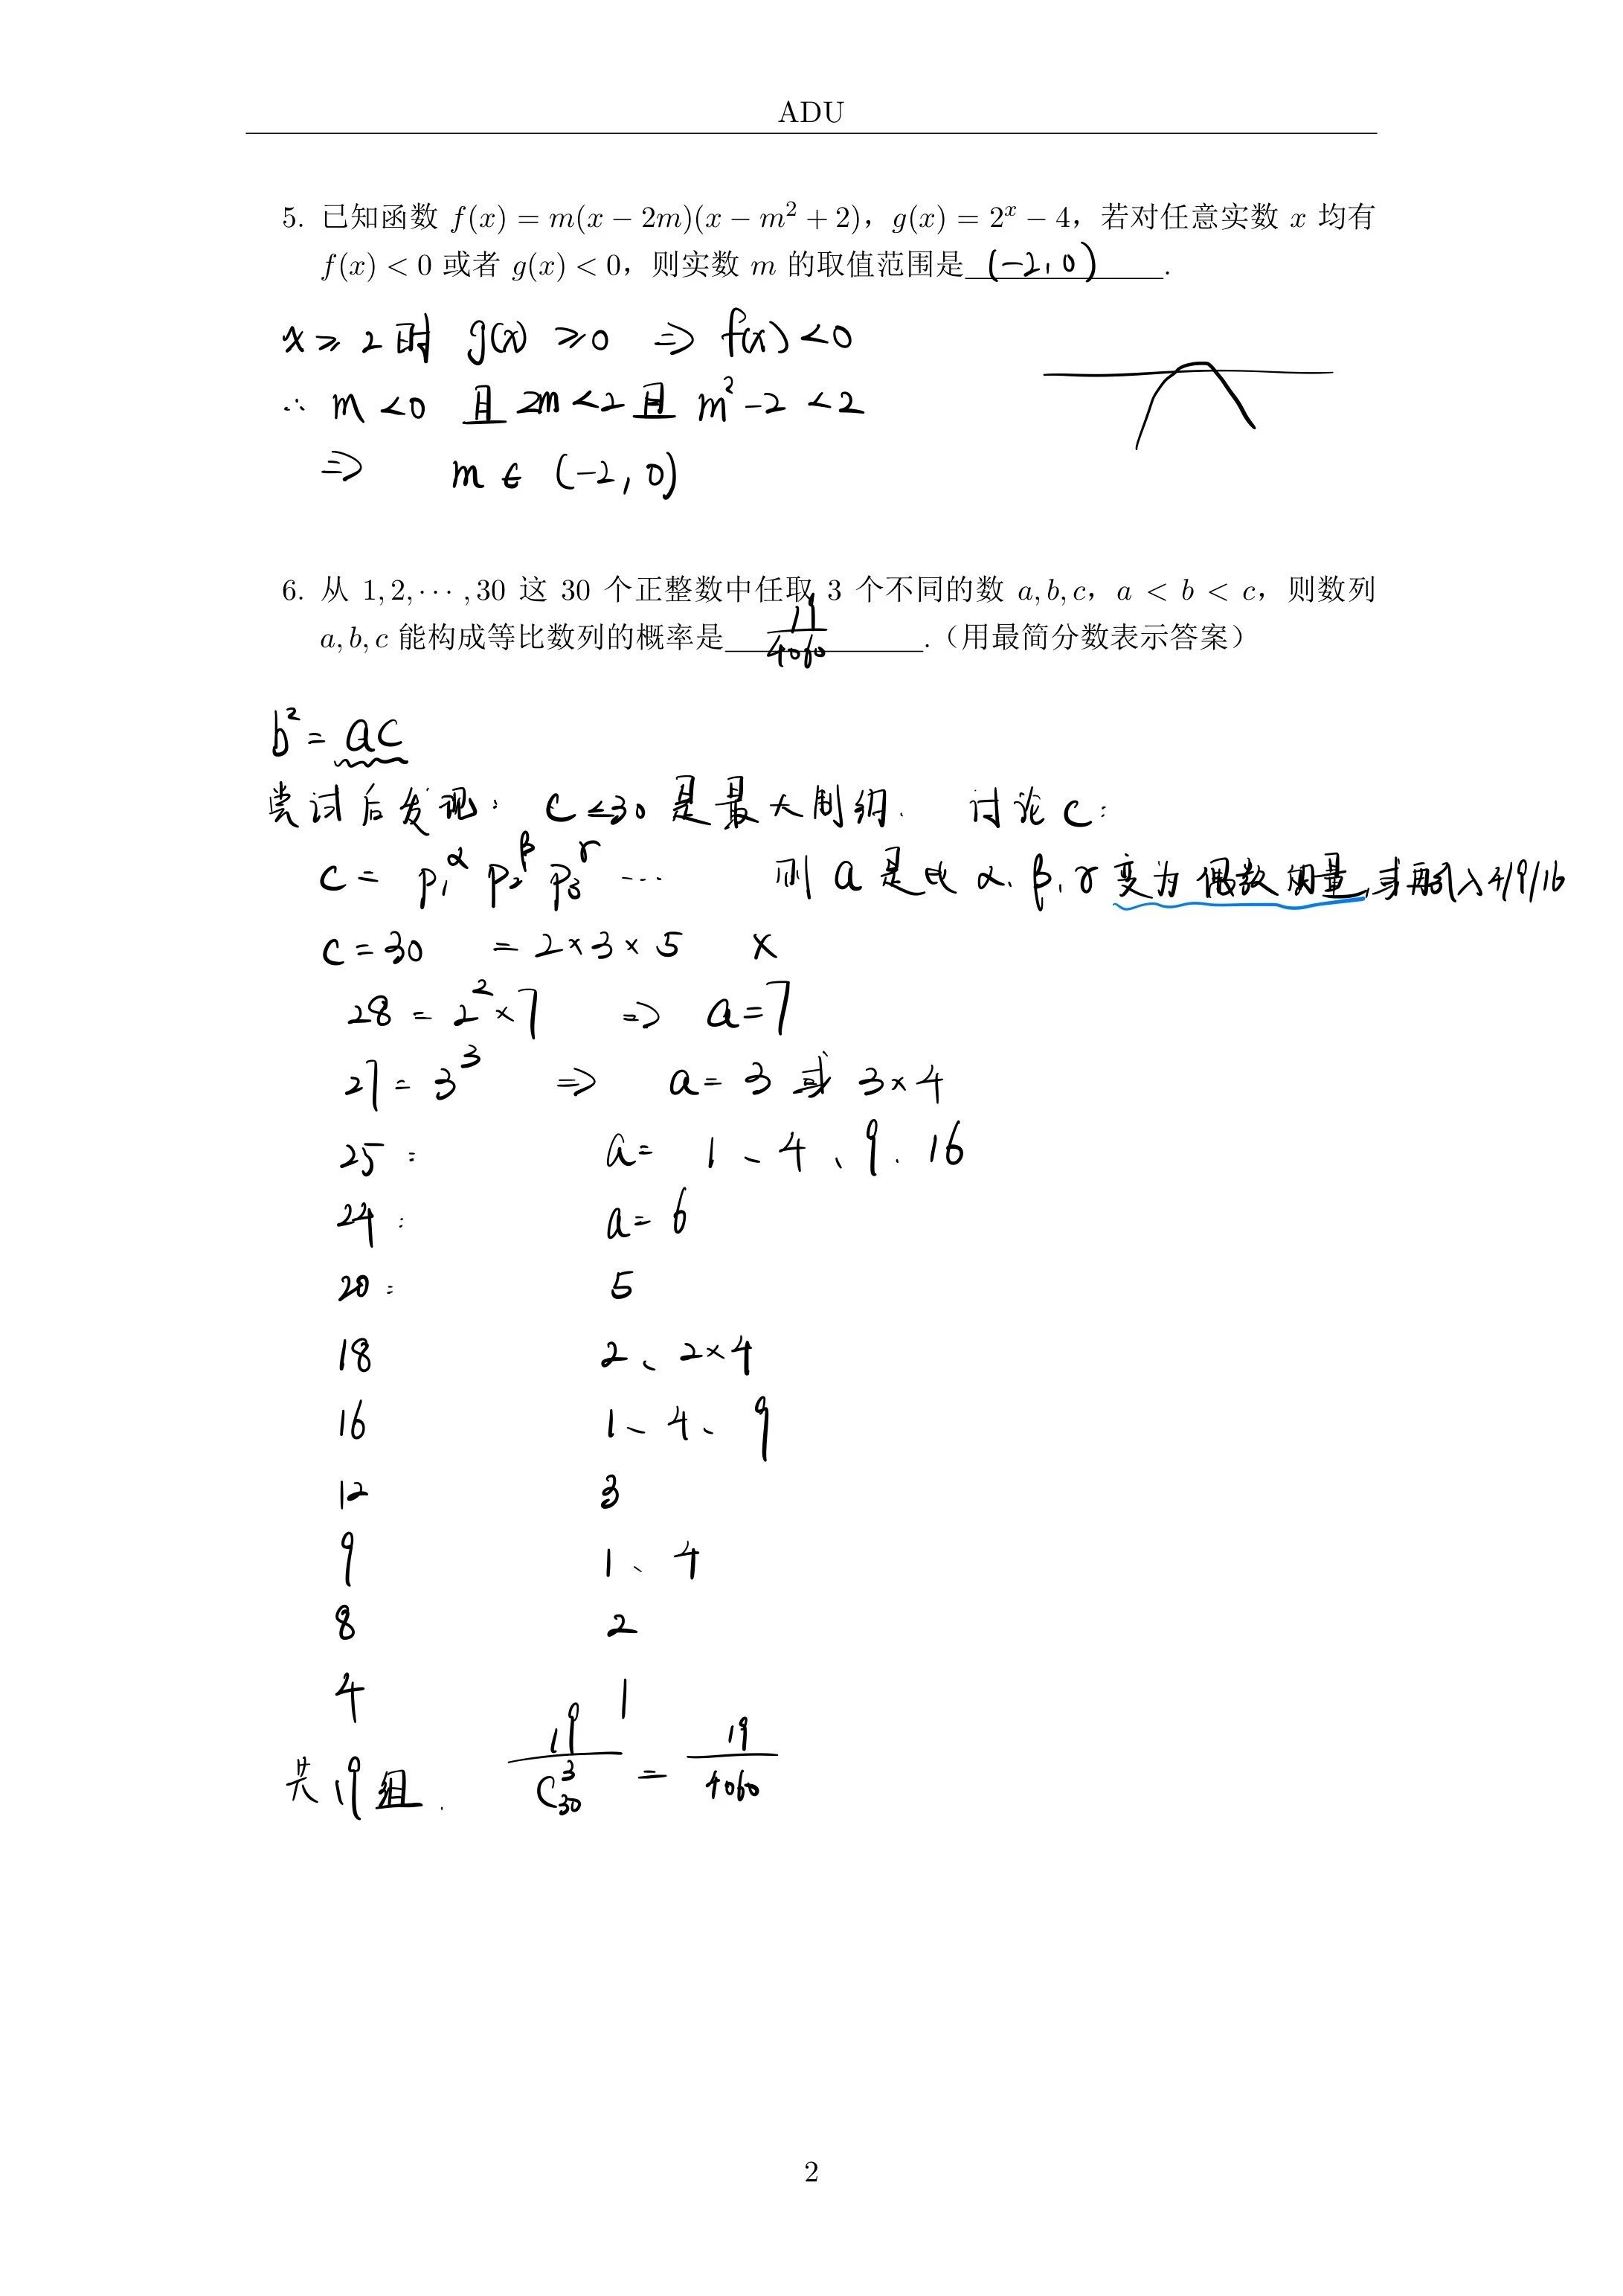 ADU
5. 已知函数 f(x) = m(x − 2m)(x − m² + 2)，g(x) = 2ˣ − 4，若对任意实数 x 均有
f(x) < 0 或者 g(x) < 0，则实数 m 的取值范围是 (-2, 0) .
x ⩾ 2 时 g(x) ⩾ 0 ⇒ f(x) < 0
∴ m < 0 且 2m < 2 且 m² - 2 < 2
⇒ m ∈ (-2, 0)
6. 从 1, 2, ⋯ , 30 这 30 个正整数中任取 3 个不同的数 a, b, c，a < b < c，则数列
a, b, c 能构成等比数列的概率是 19/4060 .（用最简分数表示答案）
b² = ac
尝试后发现: c ≤ 30 是最大制约. 讨论 c:
c = p₁^α p₂^β p₃^γ ⋯ 则 a 是或 α、β、γ 变为偶数, 或再引入 4/9/16
c = 30 = 2 × 3 × 5 ×
28 = 2² × 7 ⇒ a = 7
27 = 3³ ⇒ a = 3 或 3 × 4
25 : a = 1、4、9、16
24 : a = 6
20 : 5
18 2、2×4
16 1、4、9
12 3
9 1、4
8 2
4 1
共 19 组. 19/C₃₀³ = 19/4060
2